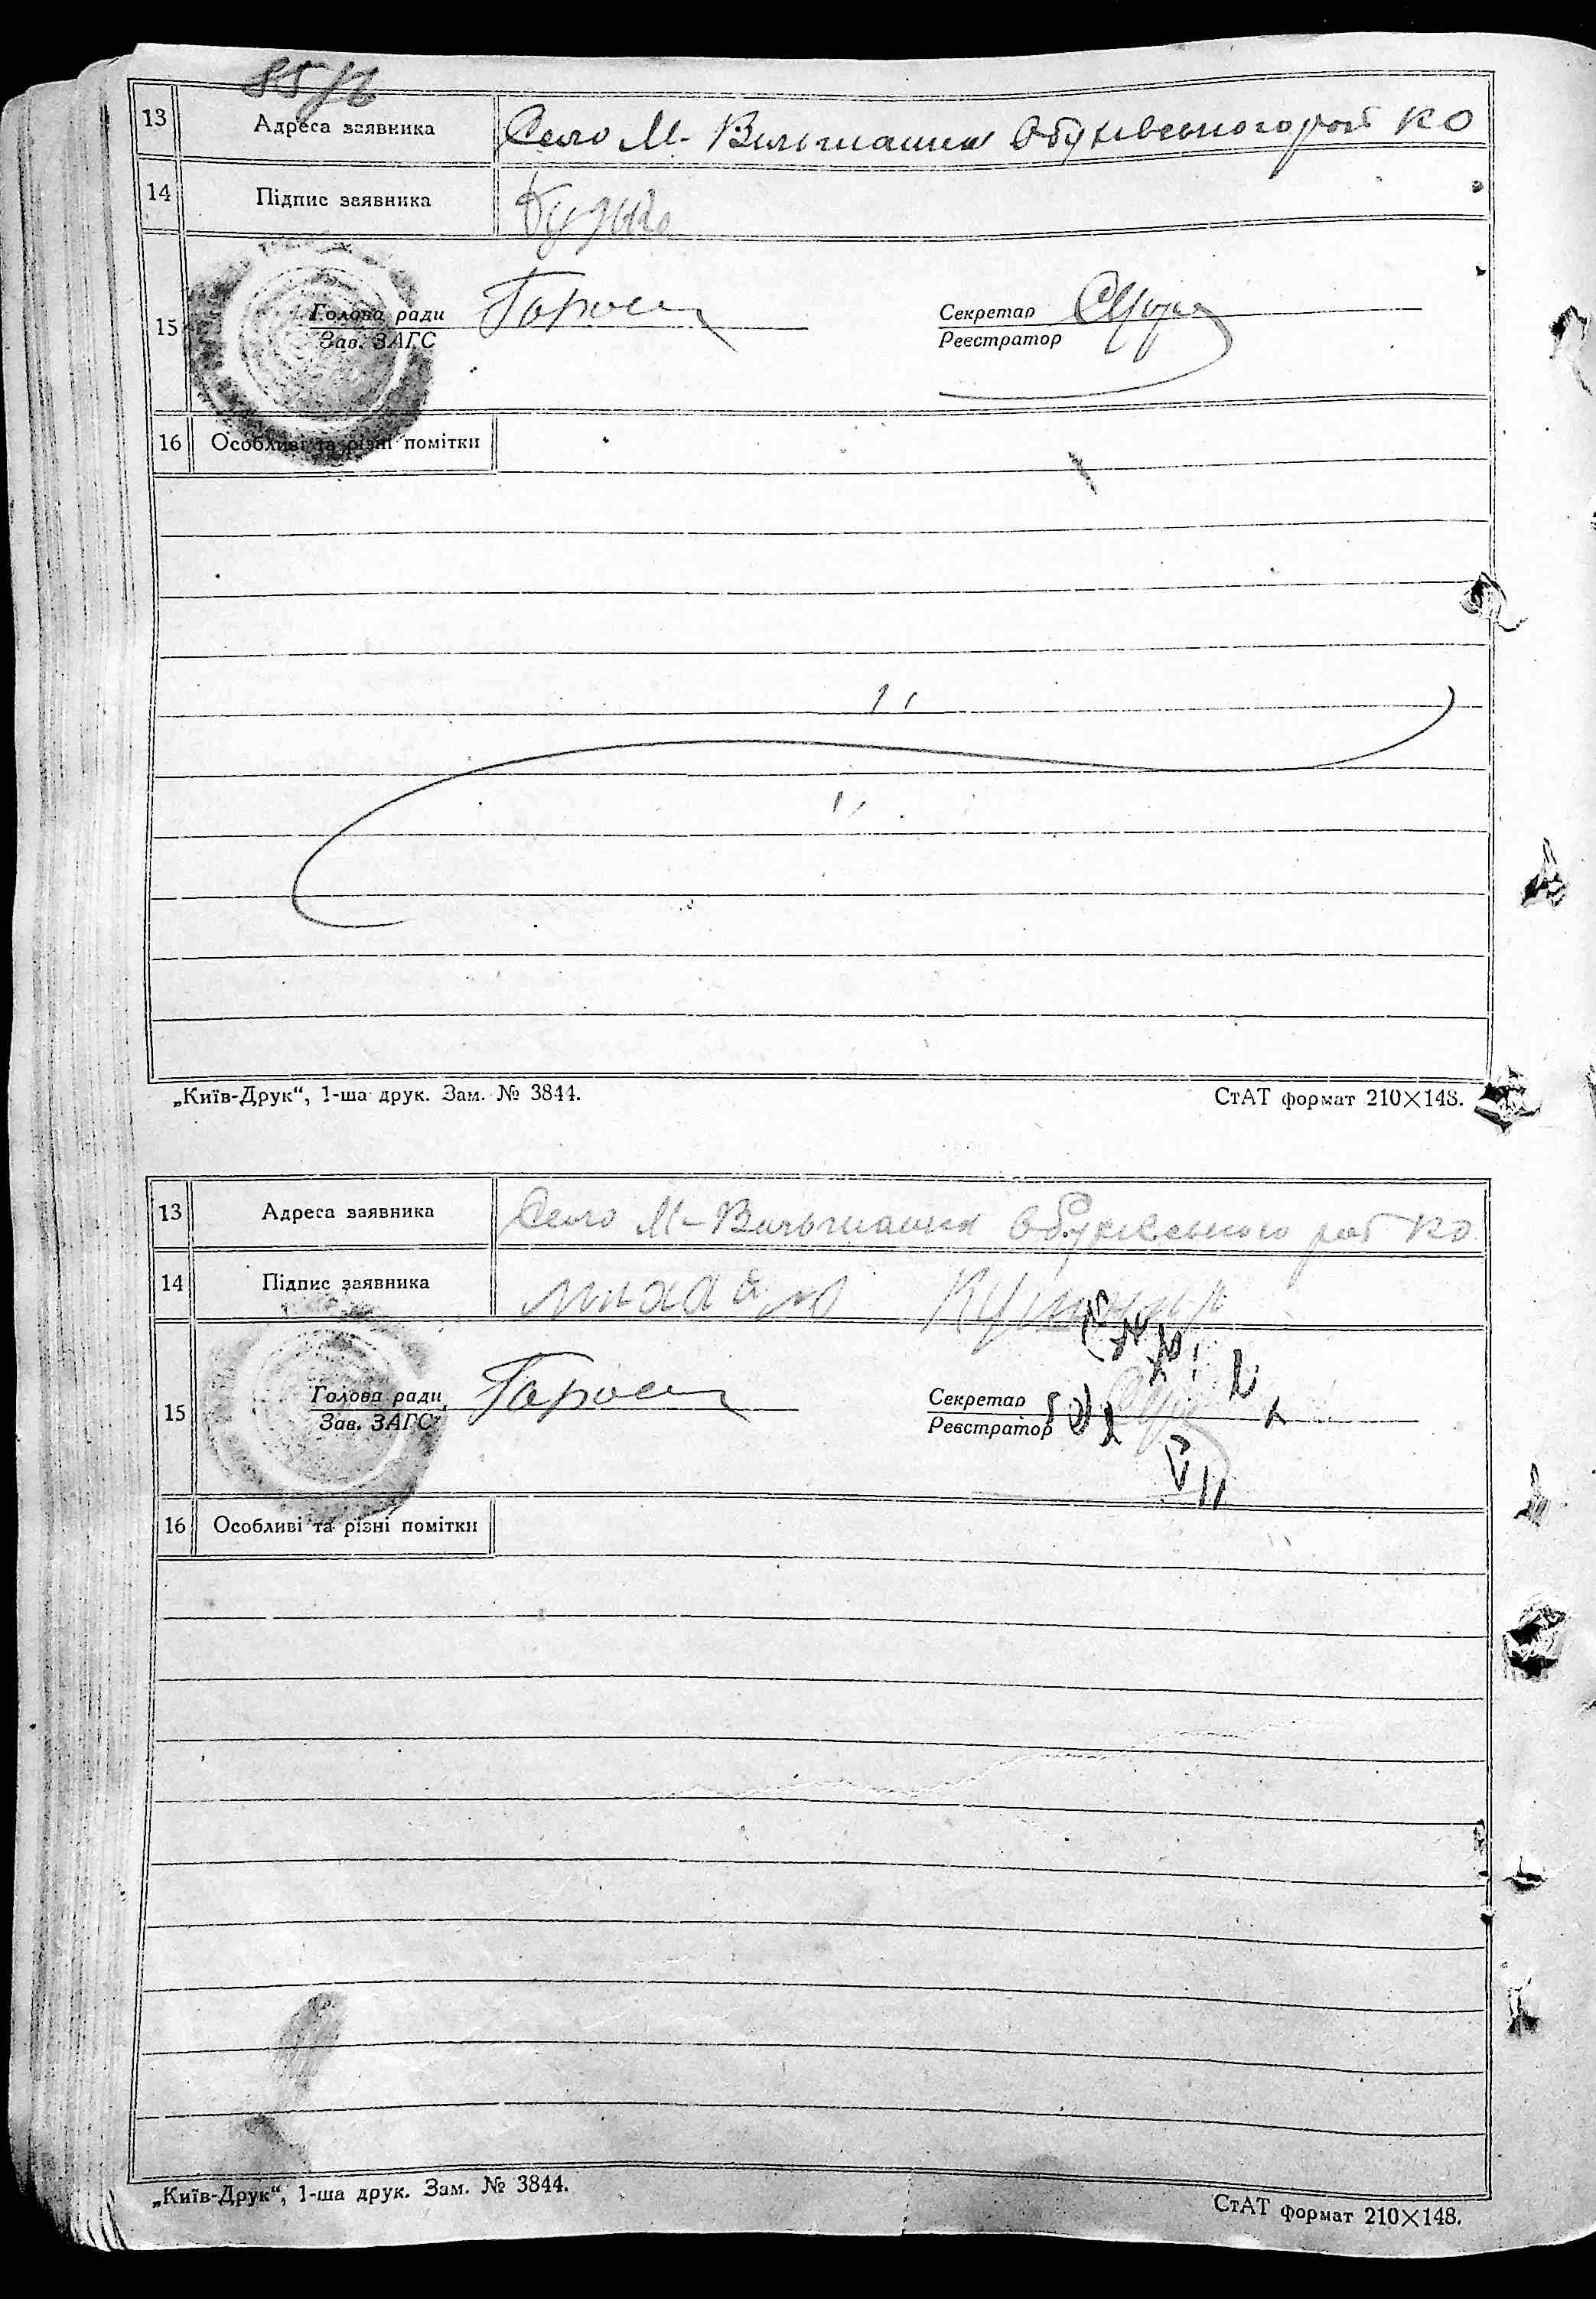 13 Адреса заявника Село М-Вильшанка Обухівського рай КО
14 Підпис заявника
15 Голова ради Секретар
Зав. ЗАГС Реєстратор
16 Особливі та різні помітки
„Київ-Друк“, 1-ша друк. Зам. № 3844. СтАТ формат 210×148.
13 Адреса заявника Село М-Вильшанка Обухівського рай КО
14 Підпис заявника Михайло
15 Голова ради Секретар
Зав. ЗАГС Реєстратор
16 Особливі та різні помітки
„Київ-Друк“, 1-ша друк. Зам. № 3844. СтАТ формат 210×148.